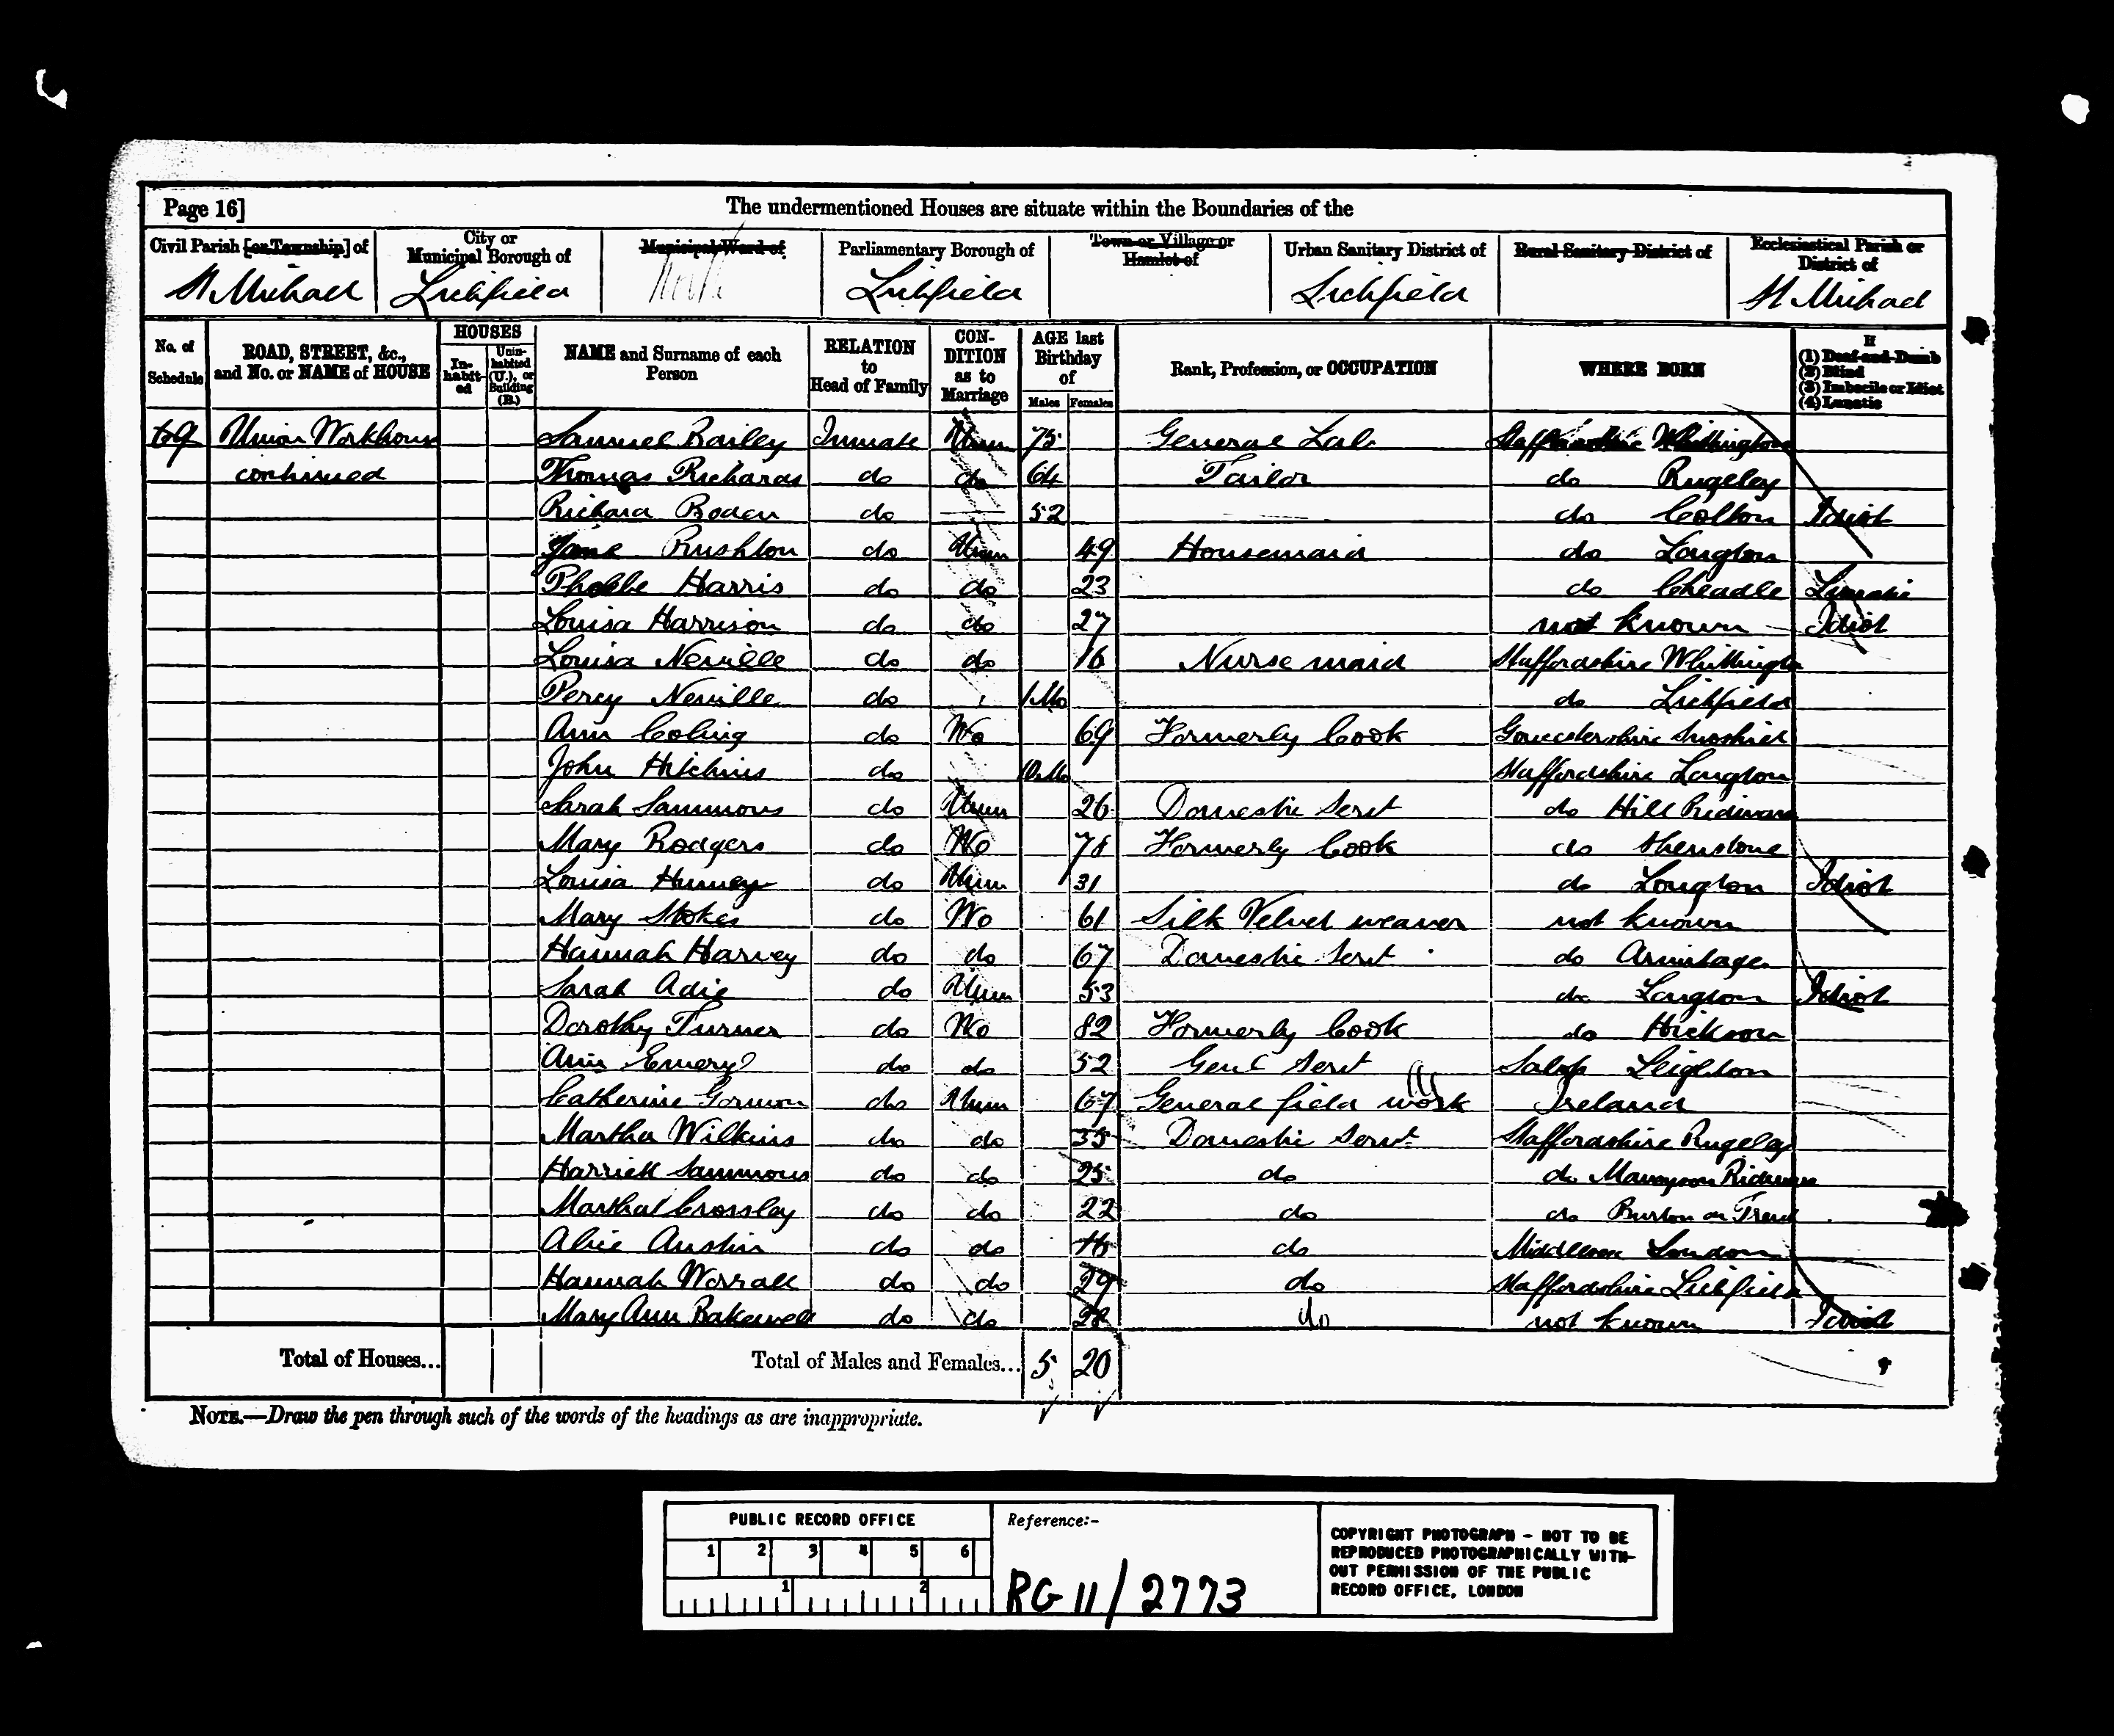 Page 16] The undermentioned Houses are situate within the Boundaries of the
Civil Parish [or Township] of City or Municipal Borough of Municipal Ward of Parliamentary Borough of Town or Village or Hamlet of Urban Sanitary District of Rural Sanitary District of Ecclesiastical Parish or District of
St Michael Lichfield North Lichfield Lichfield St Michael
No. of Schedule ROAD, STREET, &c., and No. or NAME of HOUSE HOUSES In-habit-ed Unin-habited (U.), or Building (B.) NAME and Surname of each Person RELATION to Head of Family CON-DITION as to Marriage AGE last Birthday of Males Females Rank, Profession, or OCCUPATION WHERE BORN If (1) Deaf-and-Dumb (2) Blind (3) Imbecile or Idiot (4) Lunatic
69 Union Workhouse Samuel Bailey Inmate Unm 75 General Lab Staffordshire Whittington
continued Thomas Richards do do 64 Tailor do Rugeley
Richard Boden do 52 do Colton Idiot
Jane Rushton do Unm 49 Housemaid do Longton
Phoebe Harris do do 23 do Cheadle Lunatic
Louisa Harrison do do 27 not known Idiot
Louisa Neville do do 16 Nurse maid Staffordshire Whittington
Percy Neville do 1 Mo do Lichfield
Ann do Wo 69 Formerly Cook
John Hitchins do 10 Mo Staffordshire Longdon
Sarah Sammons do Unm 26 Domestic Servt do Hill Ridware
Mary Rodgers do Wo Formerly Cook do Shenstone
Louisa do Unm 31 do Longton Idiot
Mary Stokes do Wo 61 Silk Velvet weaver not known
Hannah Harvey do do 67 Domestic Servt do Armitage
Sarah Adie do Unm 53 do Longdon Idiot
Dorothy Turner do Wo 82 Formerly Cook do Hickson
Ann Emery do do 52 Genl Servt Salop Leighton
Catherine Gormon do Unm 67 General field work Ireland
Martha Wilkins do do 35 Domestic Servt Staffordshire Rugeley
Harriett Sammons do do 25 do do Mavesyn Ridware
Martha Crossley do do 22 do do Burton on Trent
Alice Austin do do 16 do Middlesex London
Hannah Worrall do do 29 do Staffordshire Lichfield
Mary Ann Bakewell do do 28 do not known Idiot
Total of Houses... Total of Males and Females... 5 20
NOTE.—Draw the pen through such of the words of the headings as are inappropriate.
PUBLIC RECORD OFFICE
1 2 3 4 5 6
1 2
Reference:-
RG 11/2773
COPYRIGHT PHOTOGRAPH - NOT TO BE
REPRODUCED PHOTOGRAPHICALLY WITH-
OUT PERMISSION OF THE PUBLIC
RECORD OFFICE, LONDON